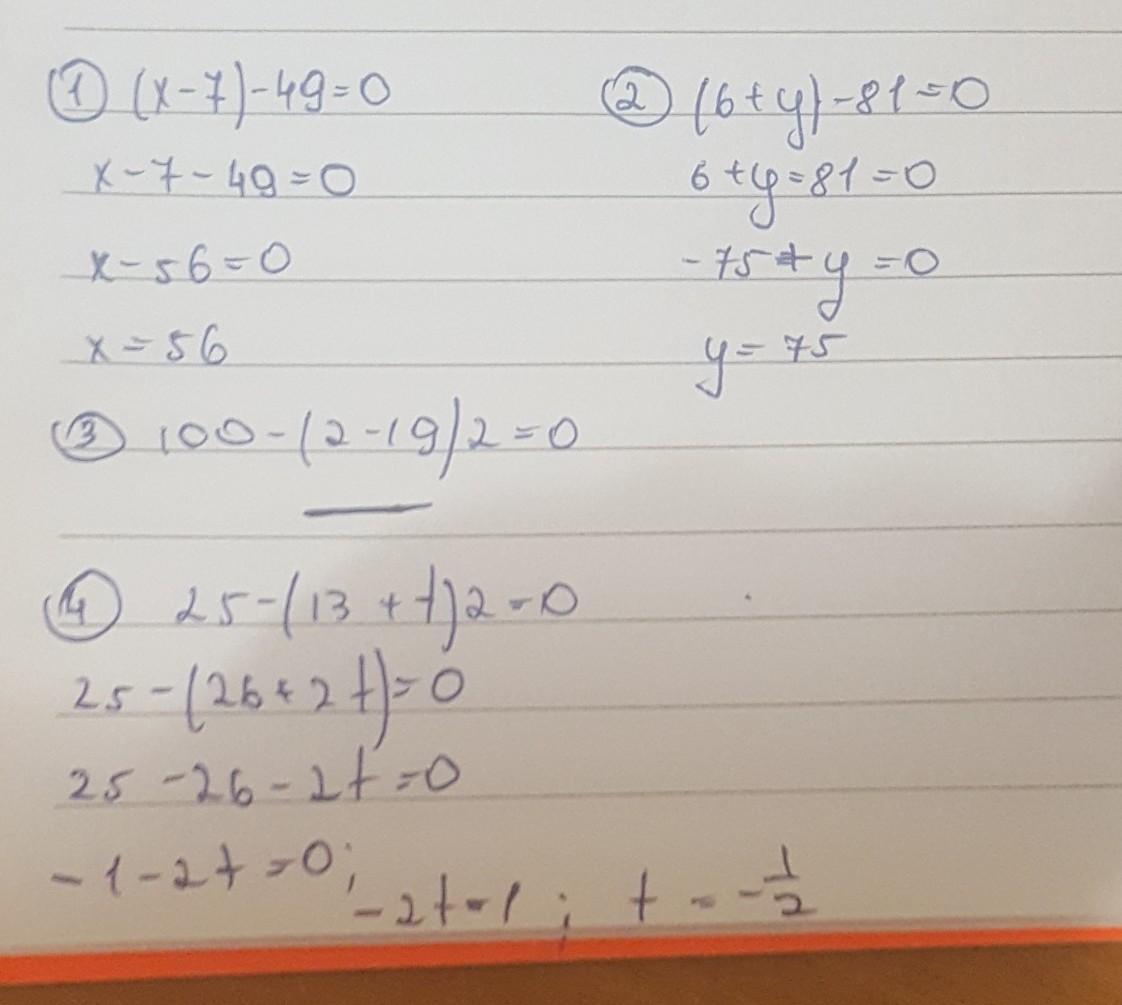 ① (x-7)-49=0
x-7-49=0
x-56=0
x=56
② (6+y)-81=0
6+y=81=0
-75+y=0
y=75
③ 100-(2-19)2=0
④ 25-(13+t)2=0
25-(26+2t)=0
25-26-2t=0
-1-2t=0; -2t=1; t=-1/2